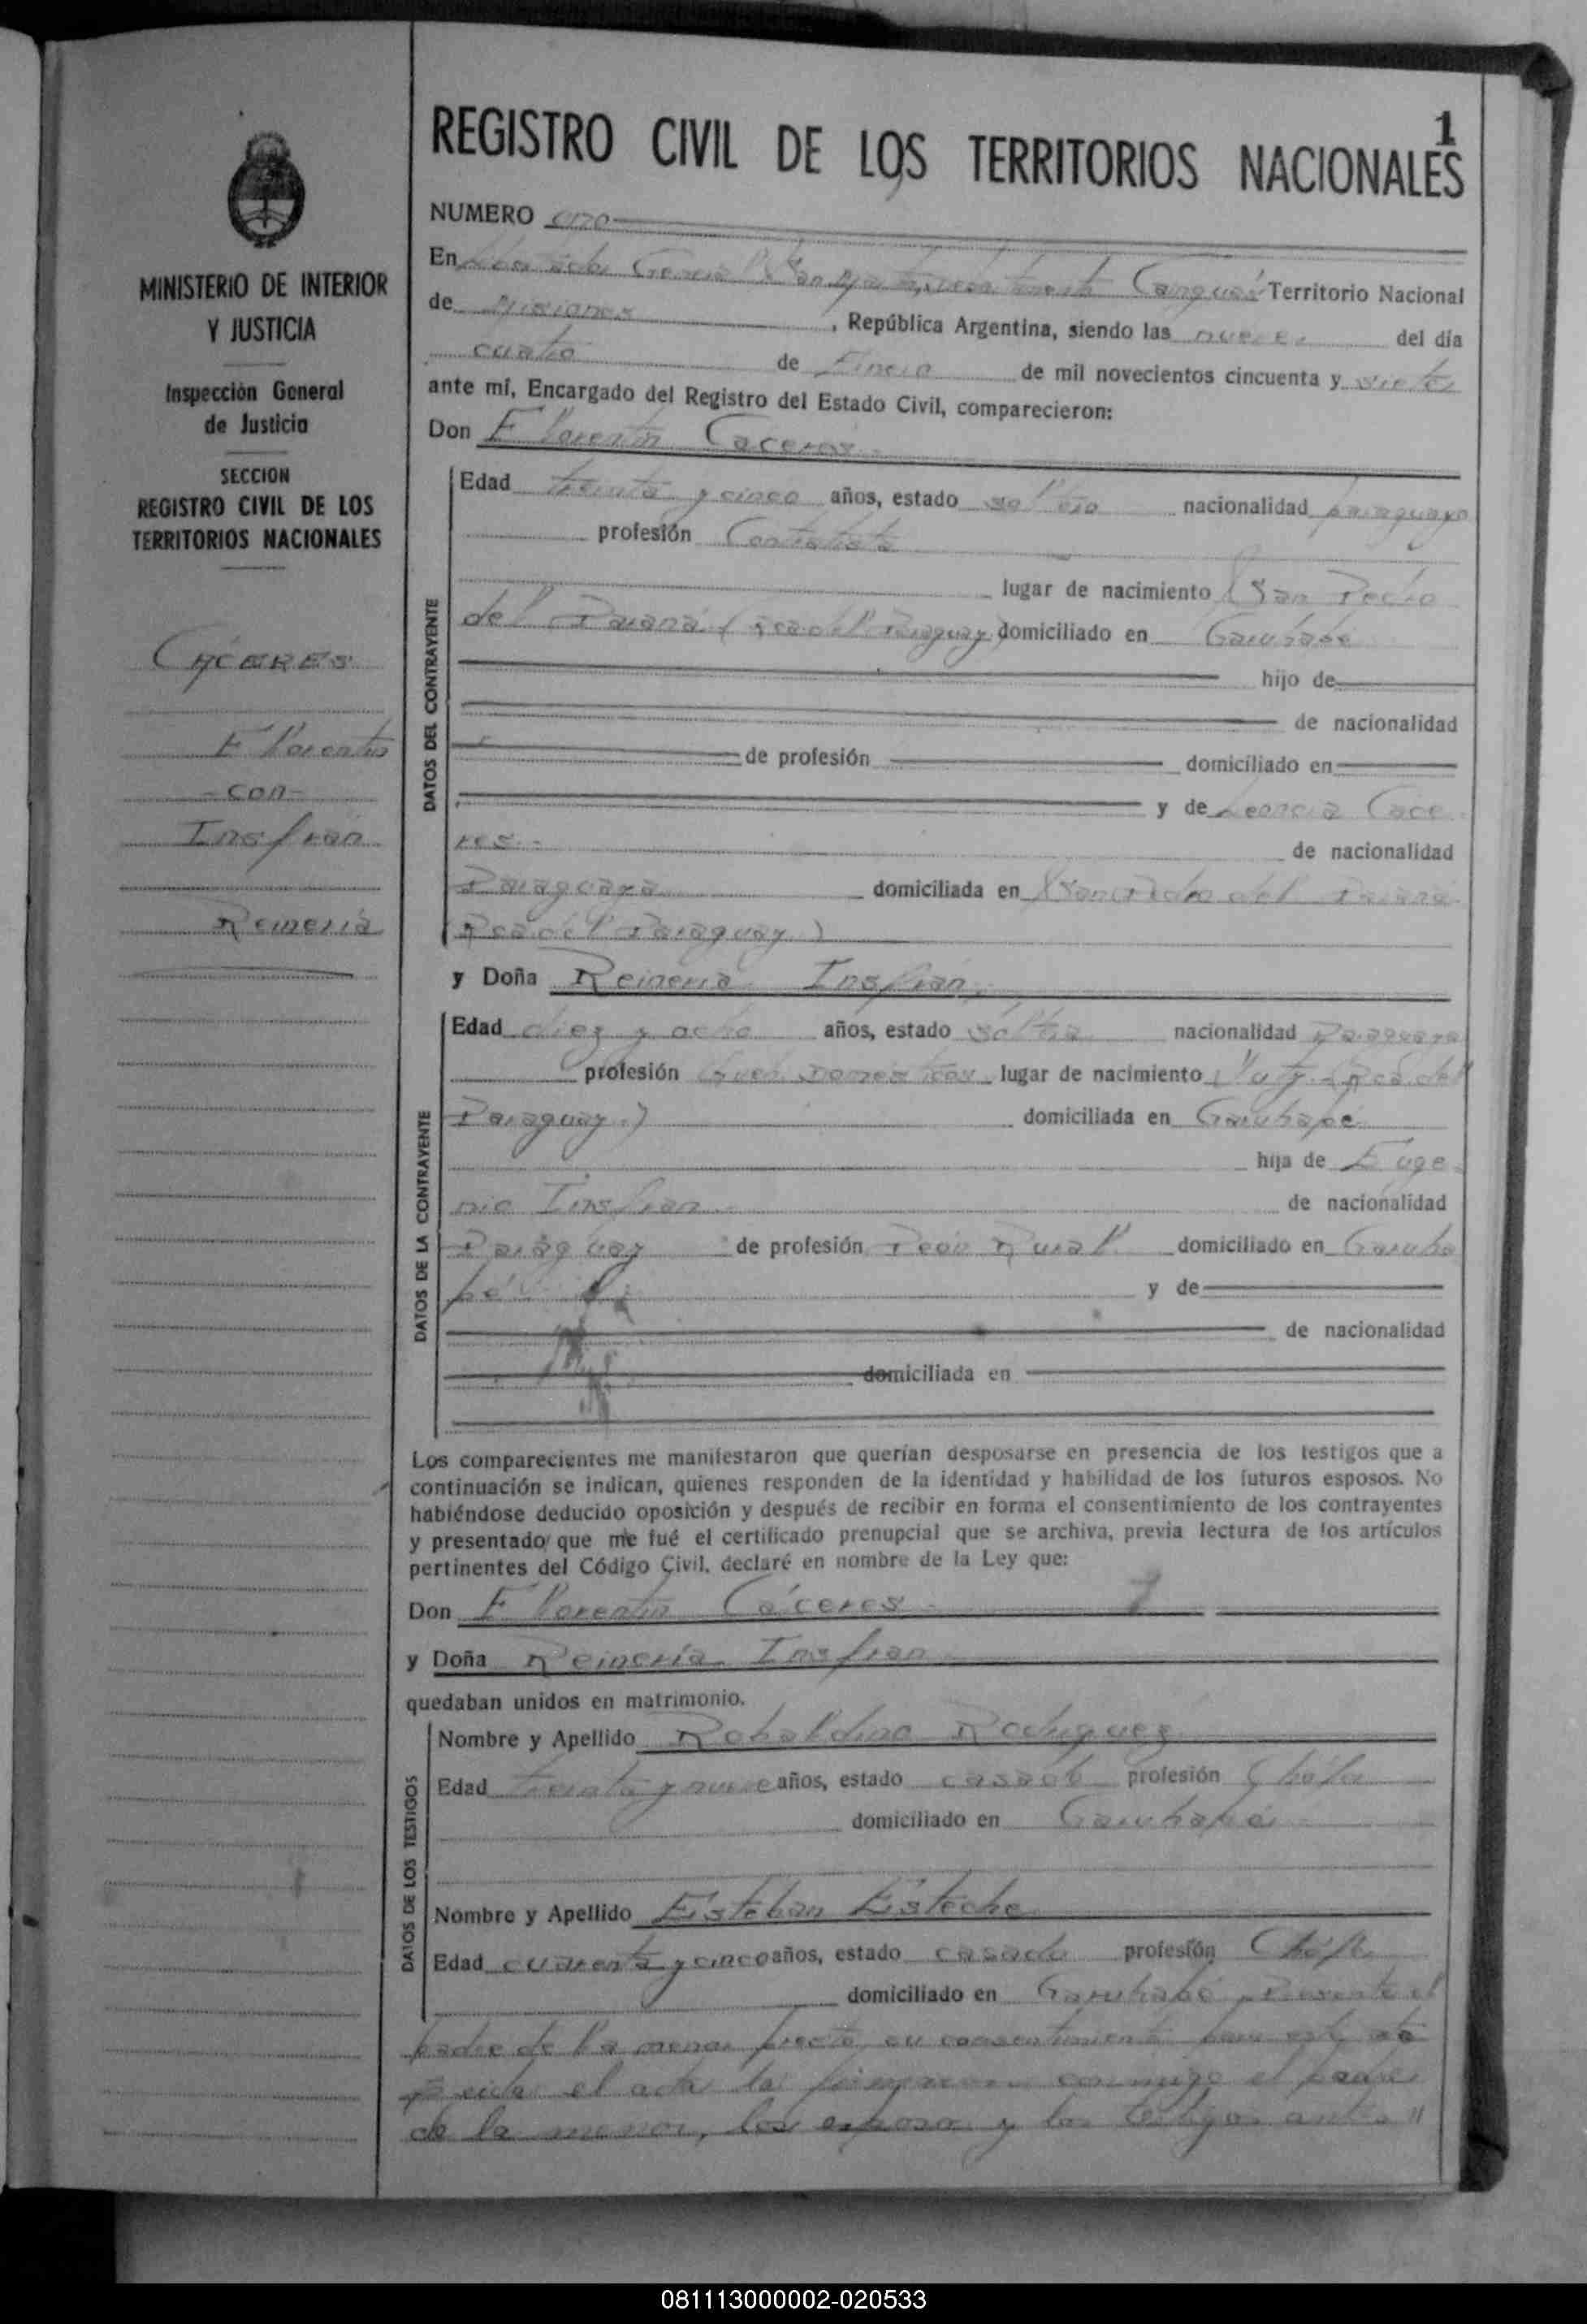 1
REGISTRO CIVIL DE LOS TERRITORIOS NACIONALES
MINISTERIO DE INTERIOR
Y JUSTICIA
Inspección General
de Justicia
SECCION
REGISTRO CIVIL DE LOS
TERRITORIOS NACIONALES
CÁCERES
Florentin
-con-
Insfrán
Reineria
NUMERO uno
En General San Martín Territorio Nacional
de Misiones, República Argentina, siendo las nueve del día
cuatro de Enero de mil novecientos cincuenta y siete
ante mí, Encargado del Registro del Estado Civil, comparecieron:
Don Florentin Caceres.
DATOS DEL CONTRAYENTE
Edad treinta y cinco años, estado soltero nacionalidad paraguayo
profesión Contratista
lugar de nacimiento (San Pedro
del Paraná (Rca del Paraguay) domiciliado en Garuhapé
hijo de
de nacionalidad
de profesión domiciliado en
y de Leoncia Cace
res.- de nacionalidad
Paraguaya domiciliada en San Pedro del Paraná
(Rca del Paraguay)
y Doña Reineria Insfrán.
DATOS DE LA CONTRAYENTE
Edad diez y ocho años, estado soltera nacionalidad Paraguaya
profesión Queh. Domesticos lugar de nacimiento Yuty - (Rca del
Paraguay) domiciliada en Garuhapé
hija de Euge
nio Insfran de nacionalidad
Paraguay de profesión Peón Rural domiciliado en Garuha
pé y de
de nacionalidad
domiciliada en
Los comparecientes me manifestaron que querían desposarse en presencia de los testigos que a
continuación se indican, quienes responden de la identidad y habilidad de los futuros esposos. No
habiéndose deducido oposición y después de recibir en forma el consentimiento de los contrayentes
y presentado que me fué el certificado prenupcial que se archiva, previa lectura de los artículos
pertinentes del Código Civil, declaré en nombre de la Ley que:
Don Florentin Cáceres
y Doña Reineria Insfran
quedaban unidos en matrimonio.
DATOS DE LOS TESTIGOS
Nombre y Apellido Robaldino Rodriguez
Edad treinta y nueve años, estado casado profesión Chófer
domiciliado en Garuhapé
Nombre y Apellido Esteban Esteche
Edad cuarenta y cinco años, estado casado profesión Chófer
domiciliado en Garuhapé Presente el
padre de la menor presta su consentimiento para este acto
Leida el acta la firmaron conmigo el padre
de la menor, los esposos y los testigos antes "
081113000002-020533